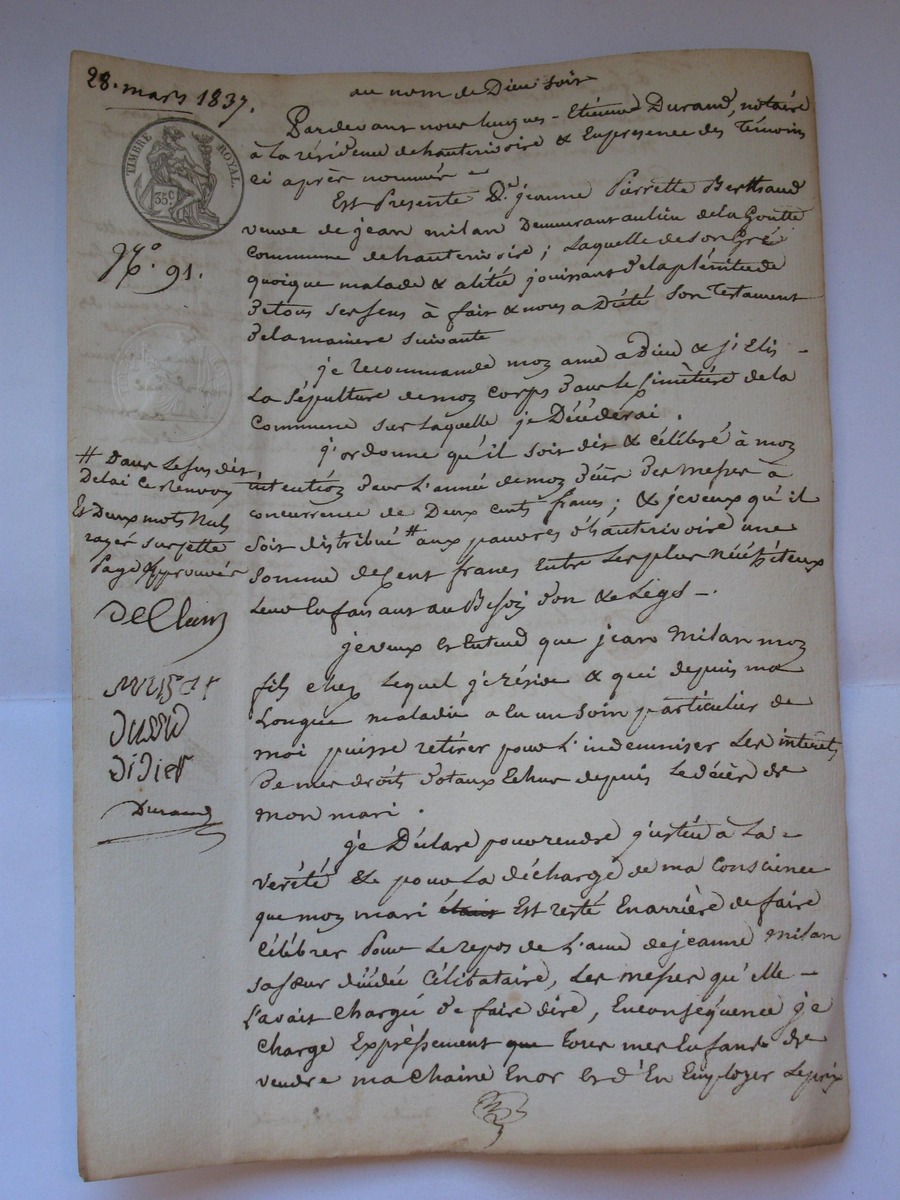 28. mars 1837.
au nom de Dieu soit
TIMBRE ROYAL.
35c
No. 91.
Pardevant nous hugues - Etienne Durand, notaire
à la résidence dehauterivoire & Enpresence des Témoins
ci après nommés -
Est Présente De. jeanne Pierrette Berthaud
veuve de jean milan Demeurant aulieu de la Goutte
commune dehauterivoire; Laquelle de son Gré
quoique malade & alitée jouissant delaplénitude
detous ses sens à fait & nous a Dicté Son Testament
delamaniere suivante
je recommande moz ame a Dieu & j'Elis -
La Sépulture de moz corps dans le Cimètière de la
commune sur laquelle je Décéderai.
j'ordonne qu'il soit dit & célébré à moz
intentioz dans L'année de moz décès des messes à
concurrence de Deux cents francs; & jeveux qu'il
soit distribué # aux pauvres d'hauterivoire une
somme de Cent francs Entre Les plus nécessiteux
Leur En faisant au Besoiz don & Legs -.
jeveux et Entend que jean Milan moz
fils chez Lequel je réside & qui depuis ma
Longue maladie a Eu un soin particulier de
moi puisse retirer pour L'indemniser Les intérêts
de mes droits dotaux Echus depuis Le décès de
mon mari.
je Déclare pour rendre justice à La -
vérité & pour La décharge de ma Conscience
que moz mari était Est resté Enarrière de faire
Célébrer Pour Le repos de L'ame de jeanne Milan
sa sœur décédée célibataire, Les messes qu'elle -
L'avait Chargé de faire dire, Enconséquence je
Charge Expréssement que tous mes Enfants de
vendre ma Chaine En or et d'En Employer Leprix
# Dans Lesus dit
Délai Ce Renvoy
Et Deux mots Nuls
rayés surcette
Page Approuvés
Didier
Durand